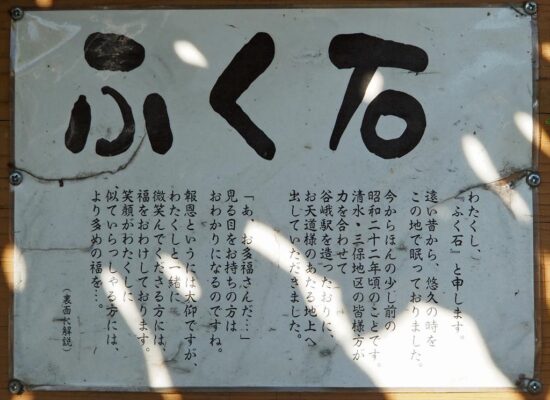 ふく石
わたくし、
『ふく石』と申します。
遠い昔から、悠久の時を
この地で眠っておりました。
今からほんの少し前の
昭和二十二年頃のことです。
清水・三保地区の皆様方が
力を合わせて
谷峨駅を造ったおりに、
お天道様のあたる地上へ
出していただきました。
「あ、お多福さんだ…」
見る目をお持ちの方は
おわかりになるのですね。
報恩というには大仰ですが、
わたくしと一緒に
微笑んでくださる方には、
福をおわけしております。
笑顔がわたくしに
似ていらっしゃる方には、
より多めの福を…。
（裏面に解説）